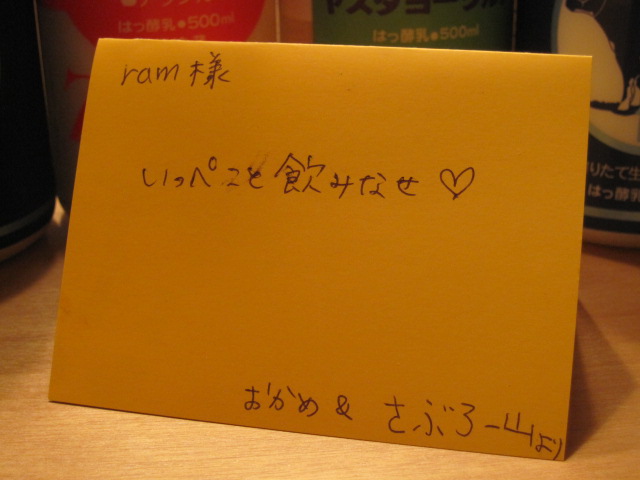 はっ酵乳●500ml
ヤスダヨーグルト
はっ酵乳●500ml
ram様
いっぺこと飲みなせ♡
りたて生
はっ酵乳
おかめ & さぶろー山より